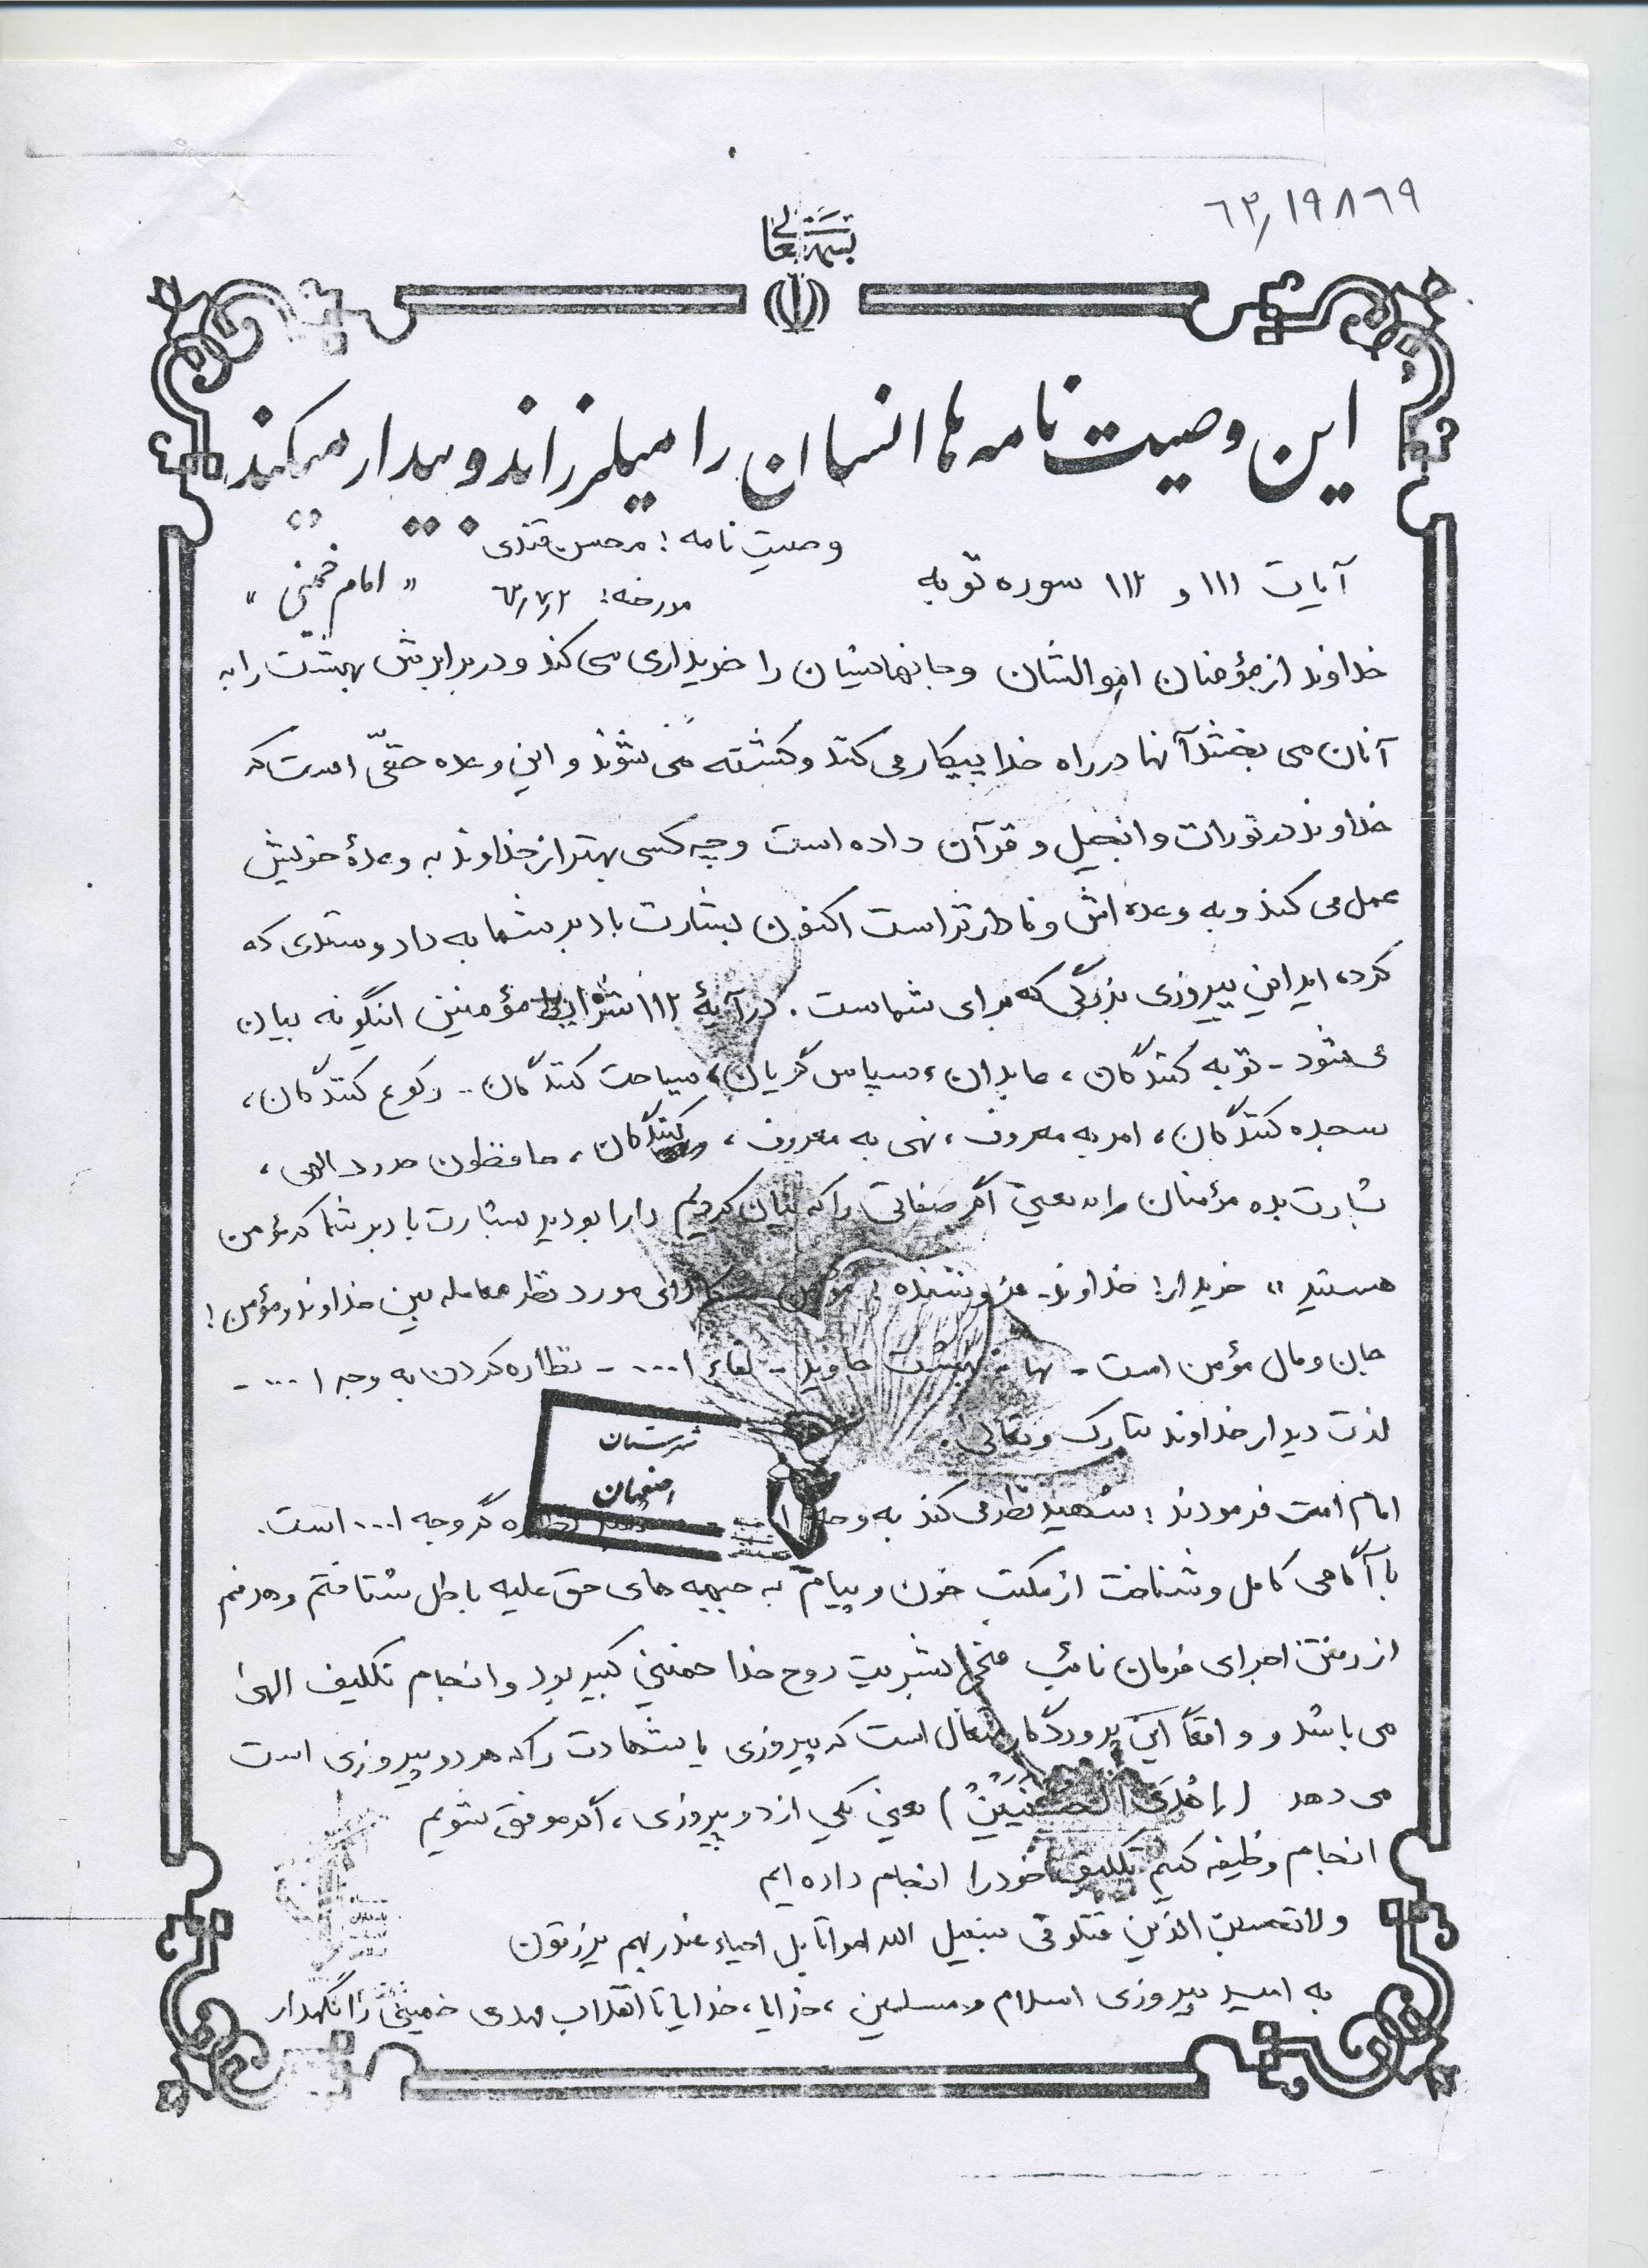 ۶۳٫۱۹۸۶۹
بسمه تعالی
این وصیت نامه ها انسان را میلرزاند و بیدار میکند
وصیت نامه : محسن قندی
آیات ۱۱۱ و ۱۱۲ سوره توبه
مورخه : ۶۳٫۷٫۲
« امام خمینی »
خداوند از مؤمنان اموالشان و جانهایشان را خریداری می کند و در برابرش بهشت را به
آنان می بخشد آنها در راه خدا پیکار می کنند و کشته می شوند و این وعده حقّی است که
خداوند در تورات و انجیل و قرآن داده است و چه کسی بهتر از خداوند به وعدهٔ خویش
عمل می کند و به وعده اش وفادارتر است اکنون بشارت باد بر شما به داد و ستدی که
کرده اید این پیروزی بزرگی که برای شماست . در آیهٔ ۱۱۲ شرایط مؤمنین اینگونه بیان
می شود - توبه کنندگان ، عابدان ، سپاس گزیان ، سیاحت کنندگان - رکوع کنندگان ،
سجده کنندگان ، امر به معروف ، نهی به معروف ، کنندگان ، حافظون حدود الهی ،
بشارت بده مؤمنان را به یعنی اگر صفاتی را که بیان کردیم دارا بودید بشارت باد بر شما که مؤمن
هستید " خریدار : خداوند - فروشنده : مؤمن کالای مورد نظر معامله بین خداوند و مؤمن !
جان و مال مؤمن است - بها : بهشت جاوید - لقاء ا... - نظاره کردن به وجه ا... -
لذت دیدار خداوند تبارک و تعالی .
شهرستان
اصفهان
امام امت فرمودند : شهید نظر می کند به وجه ا گر وجه ا... است .
با آگاهی کامل و شناخت از مکتب خون و پیام به جبهه های حق علیه باطل شتافتم و هدفم
از رفتن اجرای فرمان نائب منجی بشریت روح خدا خمینی کبیر بود و انجام تکلیف الهی
می باشد و واقعاً این پروردگار متعال است که پیروزی یا شهادت را که هر دو پیروزی است
می دهد ( اِحْدَی الْحُسْنَیَیْنِ ) یعنی یکی از دو پیروزی ، اگر موفق شویم
انجام وظیفه کنیم تکلیف خود را انجام داده ایم
ولا تحسبن الذین قتلو فی سبیل الله امواتا بل احیاء عند ربهم یرزقون
به امید پیروزی اسلام و مسلمین ، خدایا ، خدایا تا انقلاب مهدی خمینی را نگهدار